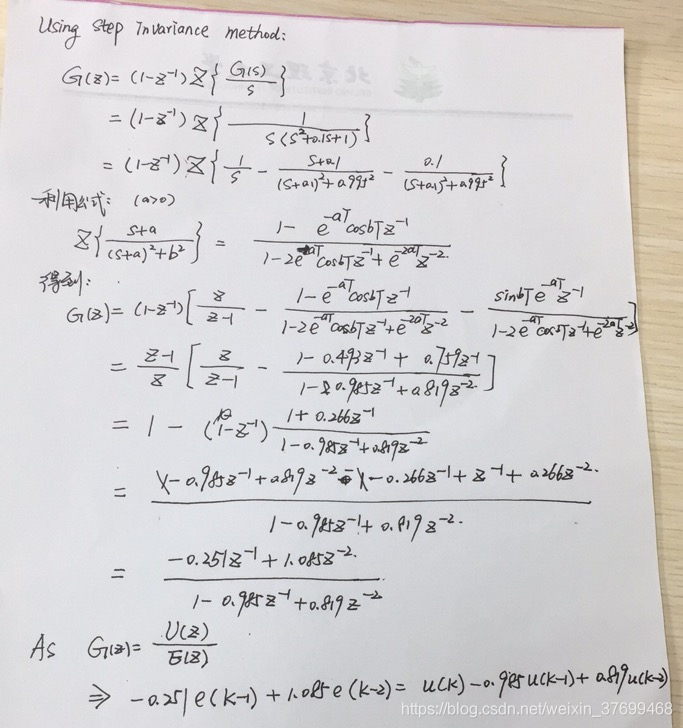 Using Step Invariance method:
G(z) = (1-z⁻¹) Z{ G(s)/s }
= (1-z⁻¹) Z{ 1/(s(s²+0.1s+1)) }
= (1-z⁻¹) Z{ 1/s - (s+0.1)/((s+0.1)²+0.995²) - 0.1/((s+0.1)²+0.995²) }
利用公式: (a>0)
Z{ (s+a)/((s+a)²+b²) } = (1-e^{-aT}cosbTz⁻¹)/(1-2e^{-aT}cosbTz⁻¹+e^{-2aT}z⁻²)
得到:
G(z) = (1-z⁻¹)[ z/(z-1) - (1-e^{-aT}cosbTz⁻¹)/(1-2e^{-aT}cosbTz⁻¹+e^{-2aT}z⁻²) - (sinbTe^{-aT}z⁻¹)/(1-2e^{-aT}cosbTz⁻¹+e^{-2aT}z⁻²) ]
= (z-1)/z [ z/(z-1) - (1-0.493z⁻¹+0.759z⁻¹)/(1-0.985z⁻¹+0.819z⁻²) ]
= 1 - (1-z⁻¹) (1+0.266z⁻¹)/(1-0.985z⁻¹+0.819z⁻²)
= (1-0.985z⁻¹+0.819z⁻²-1-0.266z⁻¹+z⁻¹+0.266z⁻²)/(1-0.985z⁻¹+0.819z⁻²)
= (-0.251z⁻¹+1.085z⁻²)/(1-0.985z⁻¹+0.819z⁻²)
As G(z) = U(z)/E(z)
⇒ -0.251e(k-1)+1.085e(k-2) = u(k)-0.985u(k-1)+0.819u(k-2)
https://blog.csdn.net/weixin_37699468